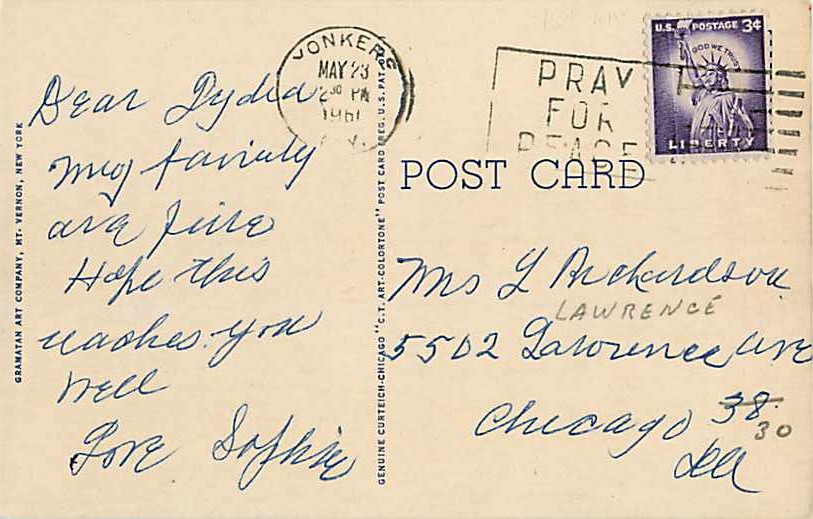 Dear Lydia
My family
are fine
Hope this
reaches you
well
Love Sophie
GRAMATAN ART COMPANY, MT. VERNON, NEW YORK
GENUINE CURTEICH-CHICAGO "C.T. ART-COLORTONE" POST CARD (REG. U.S. PAT. OFF.)
YONKERS
MAY 23
2 30 PM
1961
N.Y.
PRAY
FOR
PEACE
U.S. POSTAGE 3¢
IN GOD WE TRUST
LIBERTY
POST CARD
Mrs L Richardson
LAWRENCE
5502 Lawrence Ave
Chicago 38
30
Ill